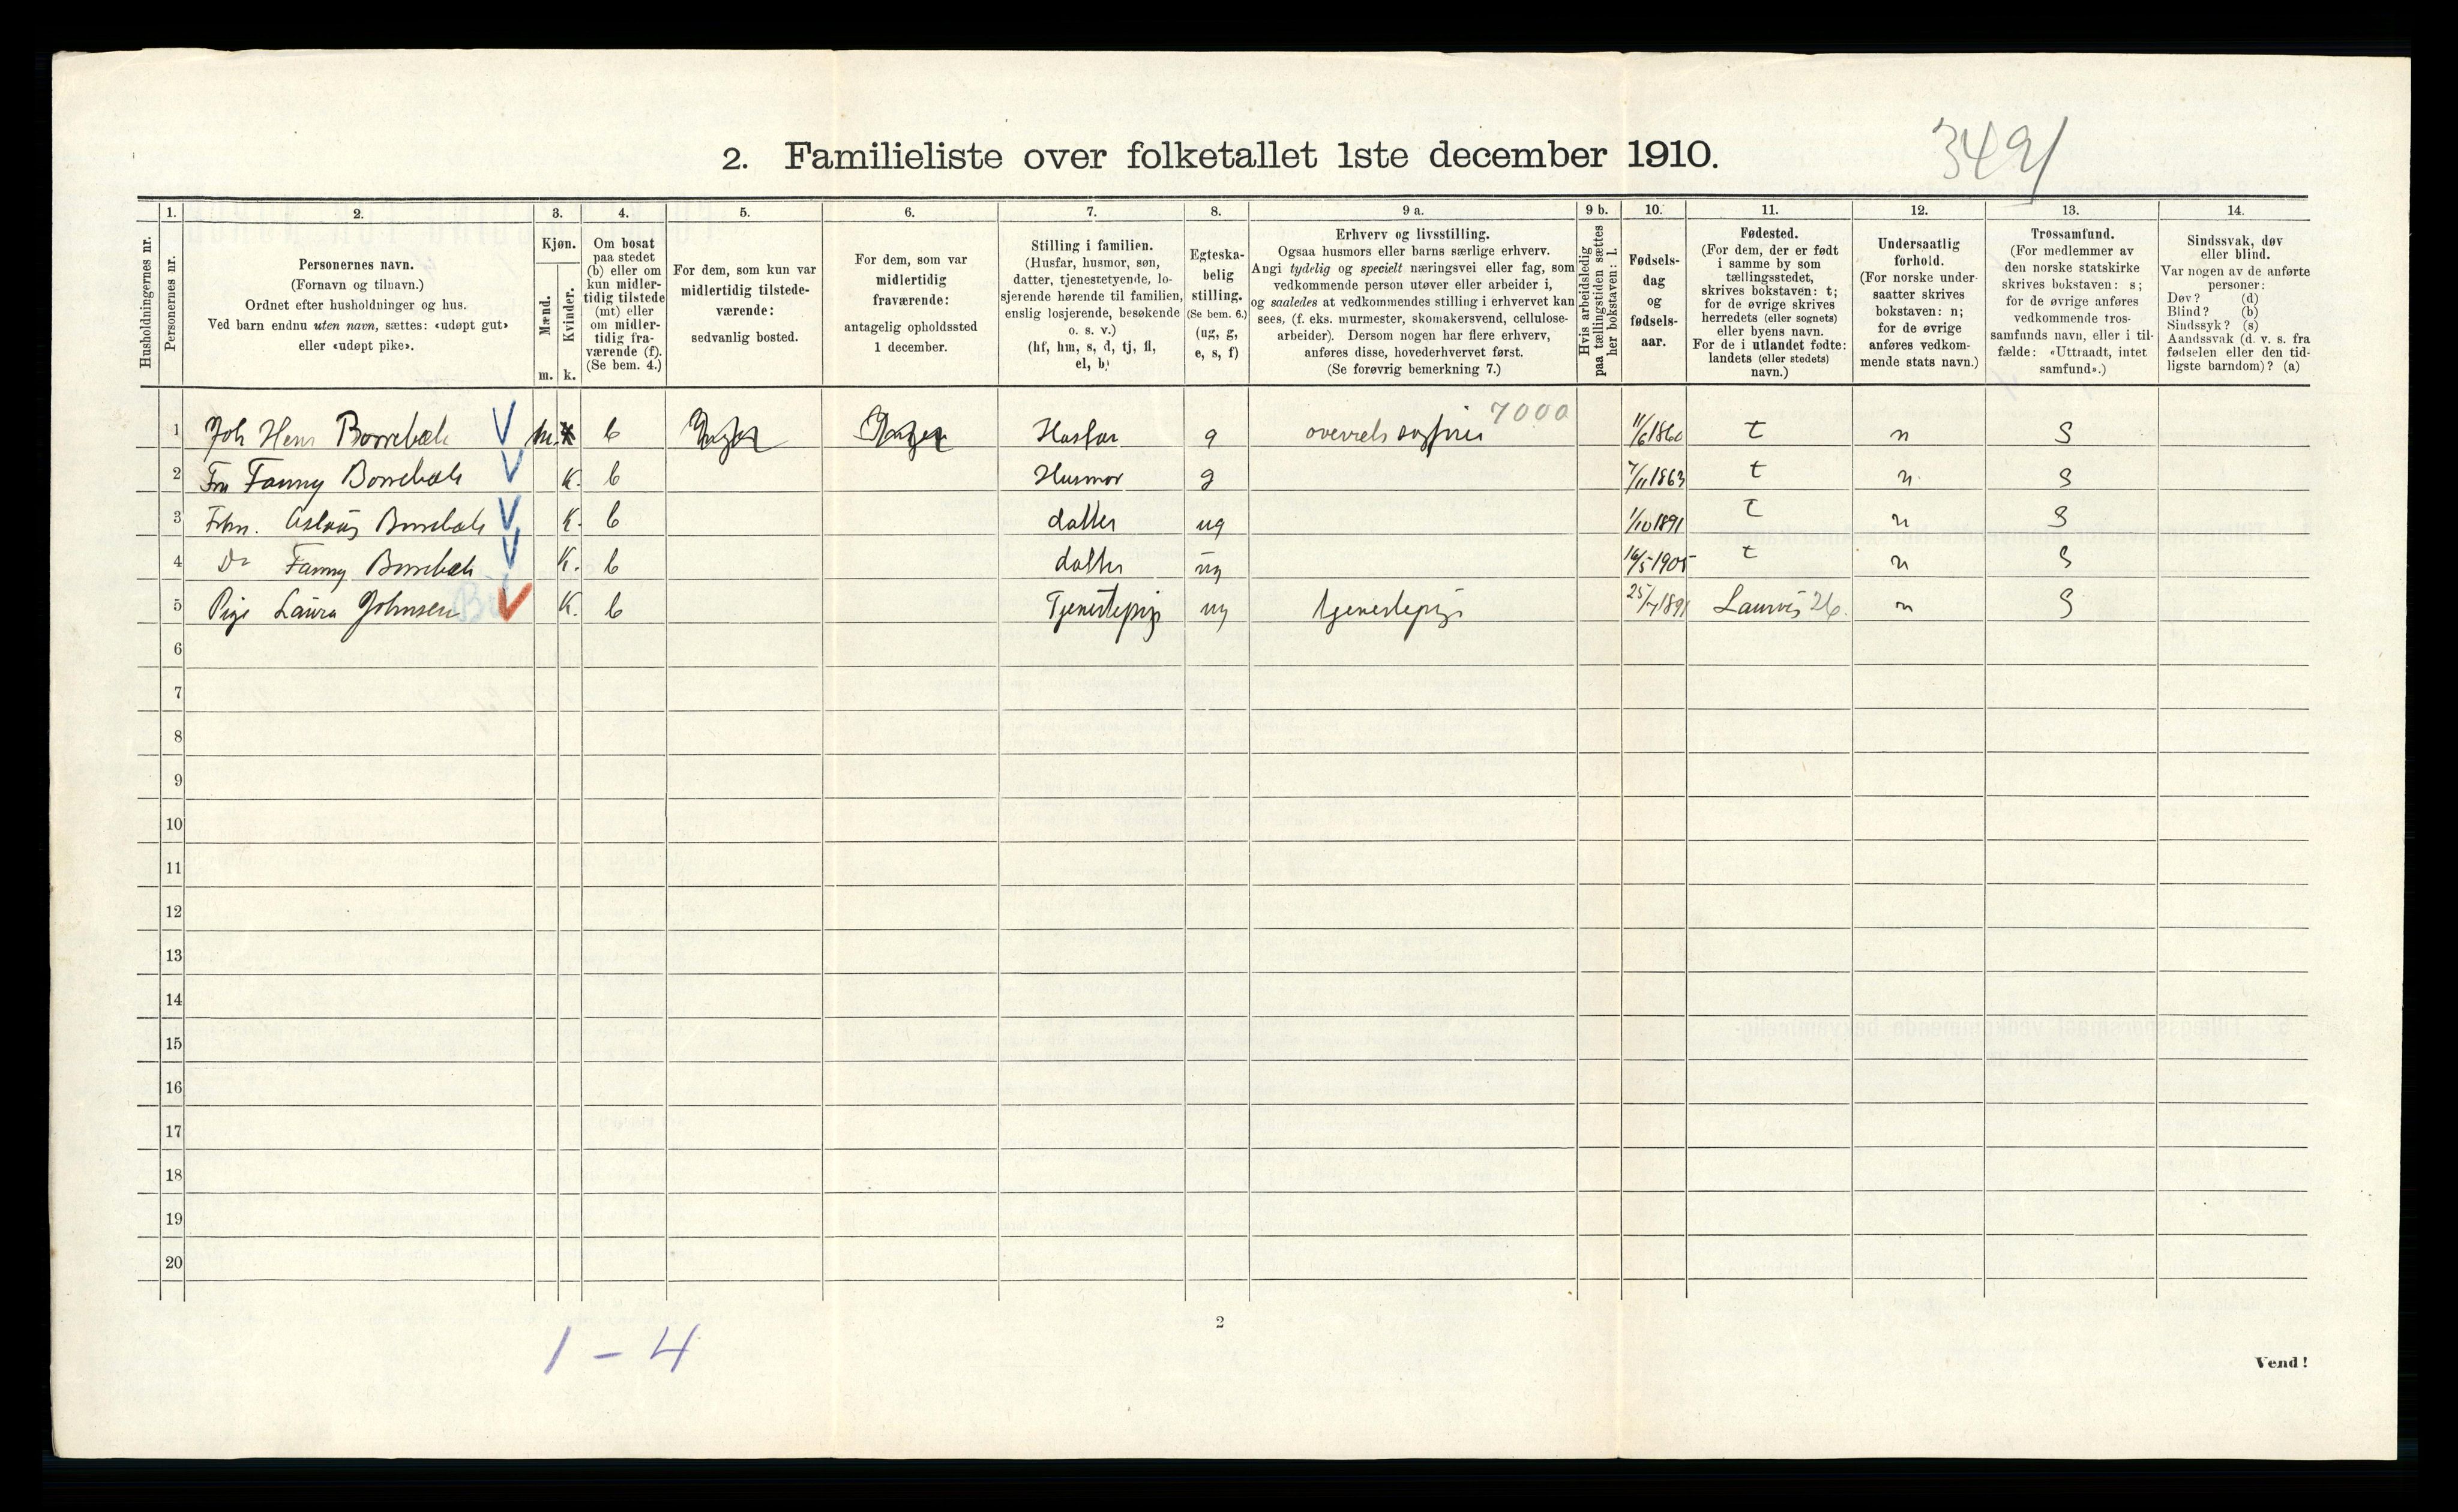 2. Familieliste over folketallet 1ste december 1910.
3491
Husholdningernes nr.
1.
Personernes nr.
2.
Personernes navn.
(Fornavn og tilnavn.)
Ordnet efter husholdninger og hus.
Ved barn endnu uten navn, sættes: «udøpt gut»
eller «udøpt pike».
3.
Kjøn.
Mænd.
Kvinder.
m. k.
4.
Om bosat
paa stedet
(b) eller om
kun midler-
tidig tilstede
(mt) eller
om midler-
tidig fra-
værende (f).
(Se bem. 4.)
5.
For dem, som kun var
midlertidig tilstede-
værende:
sedvanlig bosted.
6.
For dem, som var
midlertidig
fraværende:
antagelig opholdssted
1 december.
7.
Stilling i familien.
(Husfar, husmor, søn,
datter, tjenestetyende, lo-
sjerende hørende til familien,
enslig losjerende, besøkende
o. s. v.)
(hf, hm, s, d, tj, fl,
el, b)
8.
Egteska-
belig
stilling.
(Se bem. 6.)
(ug, g,
e, s, f)
9 a.
Erhverv og livsstilling.
Ogsaa husmors eller barns særlige erhverv.
Angi tydelig og specielt næringsvei eller fag, som
vedkommende person utøver eller arbeider i,
og saaledes at vedkommendes stilling i erhvervet kan
sees, (f. eks. murmester, skomakersvend, cellulose-
arbeider). Dersom nogen har flere erhverv,
anføres disse, hovederhvervet først.
(Se forøvrig bemerkning 7.)
9 b.
Hvis arbeidsledig
paa tællingstiden sættes
her bokstaven: l.
10.
Fødsels-
dag
og
fødsels-
aar.
11.
Fødested.
(For dem, der er født
i samme by som
tællingsstedet,
skrives bokstaven: t;
for de øvrige skrives
herredets (eller sognets)
eller byens navn.
For de i utlandet fødte:
landets (eller stedets)
navn.)
12.
Undersaatlig
forhold.
(For norske under-
saatter skrives
bokstaven: n;
for de øvrige
anføres vedkom-
mende stats navn.)
13.
Trossamfund.
(For medlemmer av
den norske statskirke
skrives bokstaven: s;
for de øvrige anføres
vedkommende tros-
samfunds navn, eller i til-
fælde: «Uttraadt, intet
samfund».)
14.
Sindssvak, døv
eller blind.
Var nogen av de anførte
personer:
Døv? (d)
Blind? (b)
Sindssyk? (s)
Aandssvak (d. v. s. fra
fødselen eller den tid-
ligste barndom)? (a)
1 Joh Borrebæk m. b Husfar g 7000 11/6 1860 t n S
2 Fru Fanny Borrebæk K. b Husmor g 7/11 1863 t n S
3 Frkn. Aslaug Borrebæk K. b datter ug 1/10 1891 t n S
4 Do Fanny Borrebæk K. b datter ug 16/5 1905 t n S
5 Pige Laura Johnsen K. b Tjenestepige ug tjenestepige 25/7 1891 Laurvig 26. n S
6
7
8
9
10
11
12
13
14
15
16
17
18
19
20
2
1 - 4
Vend!